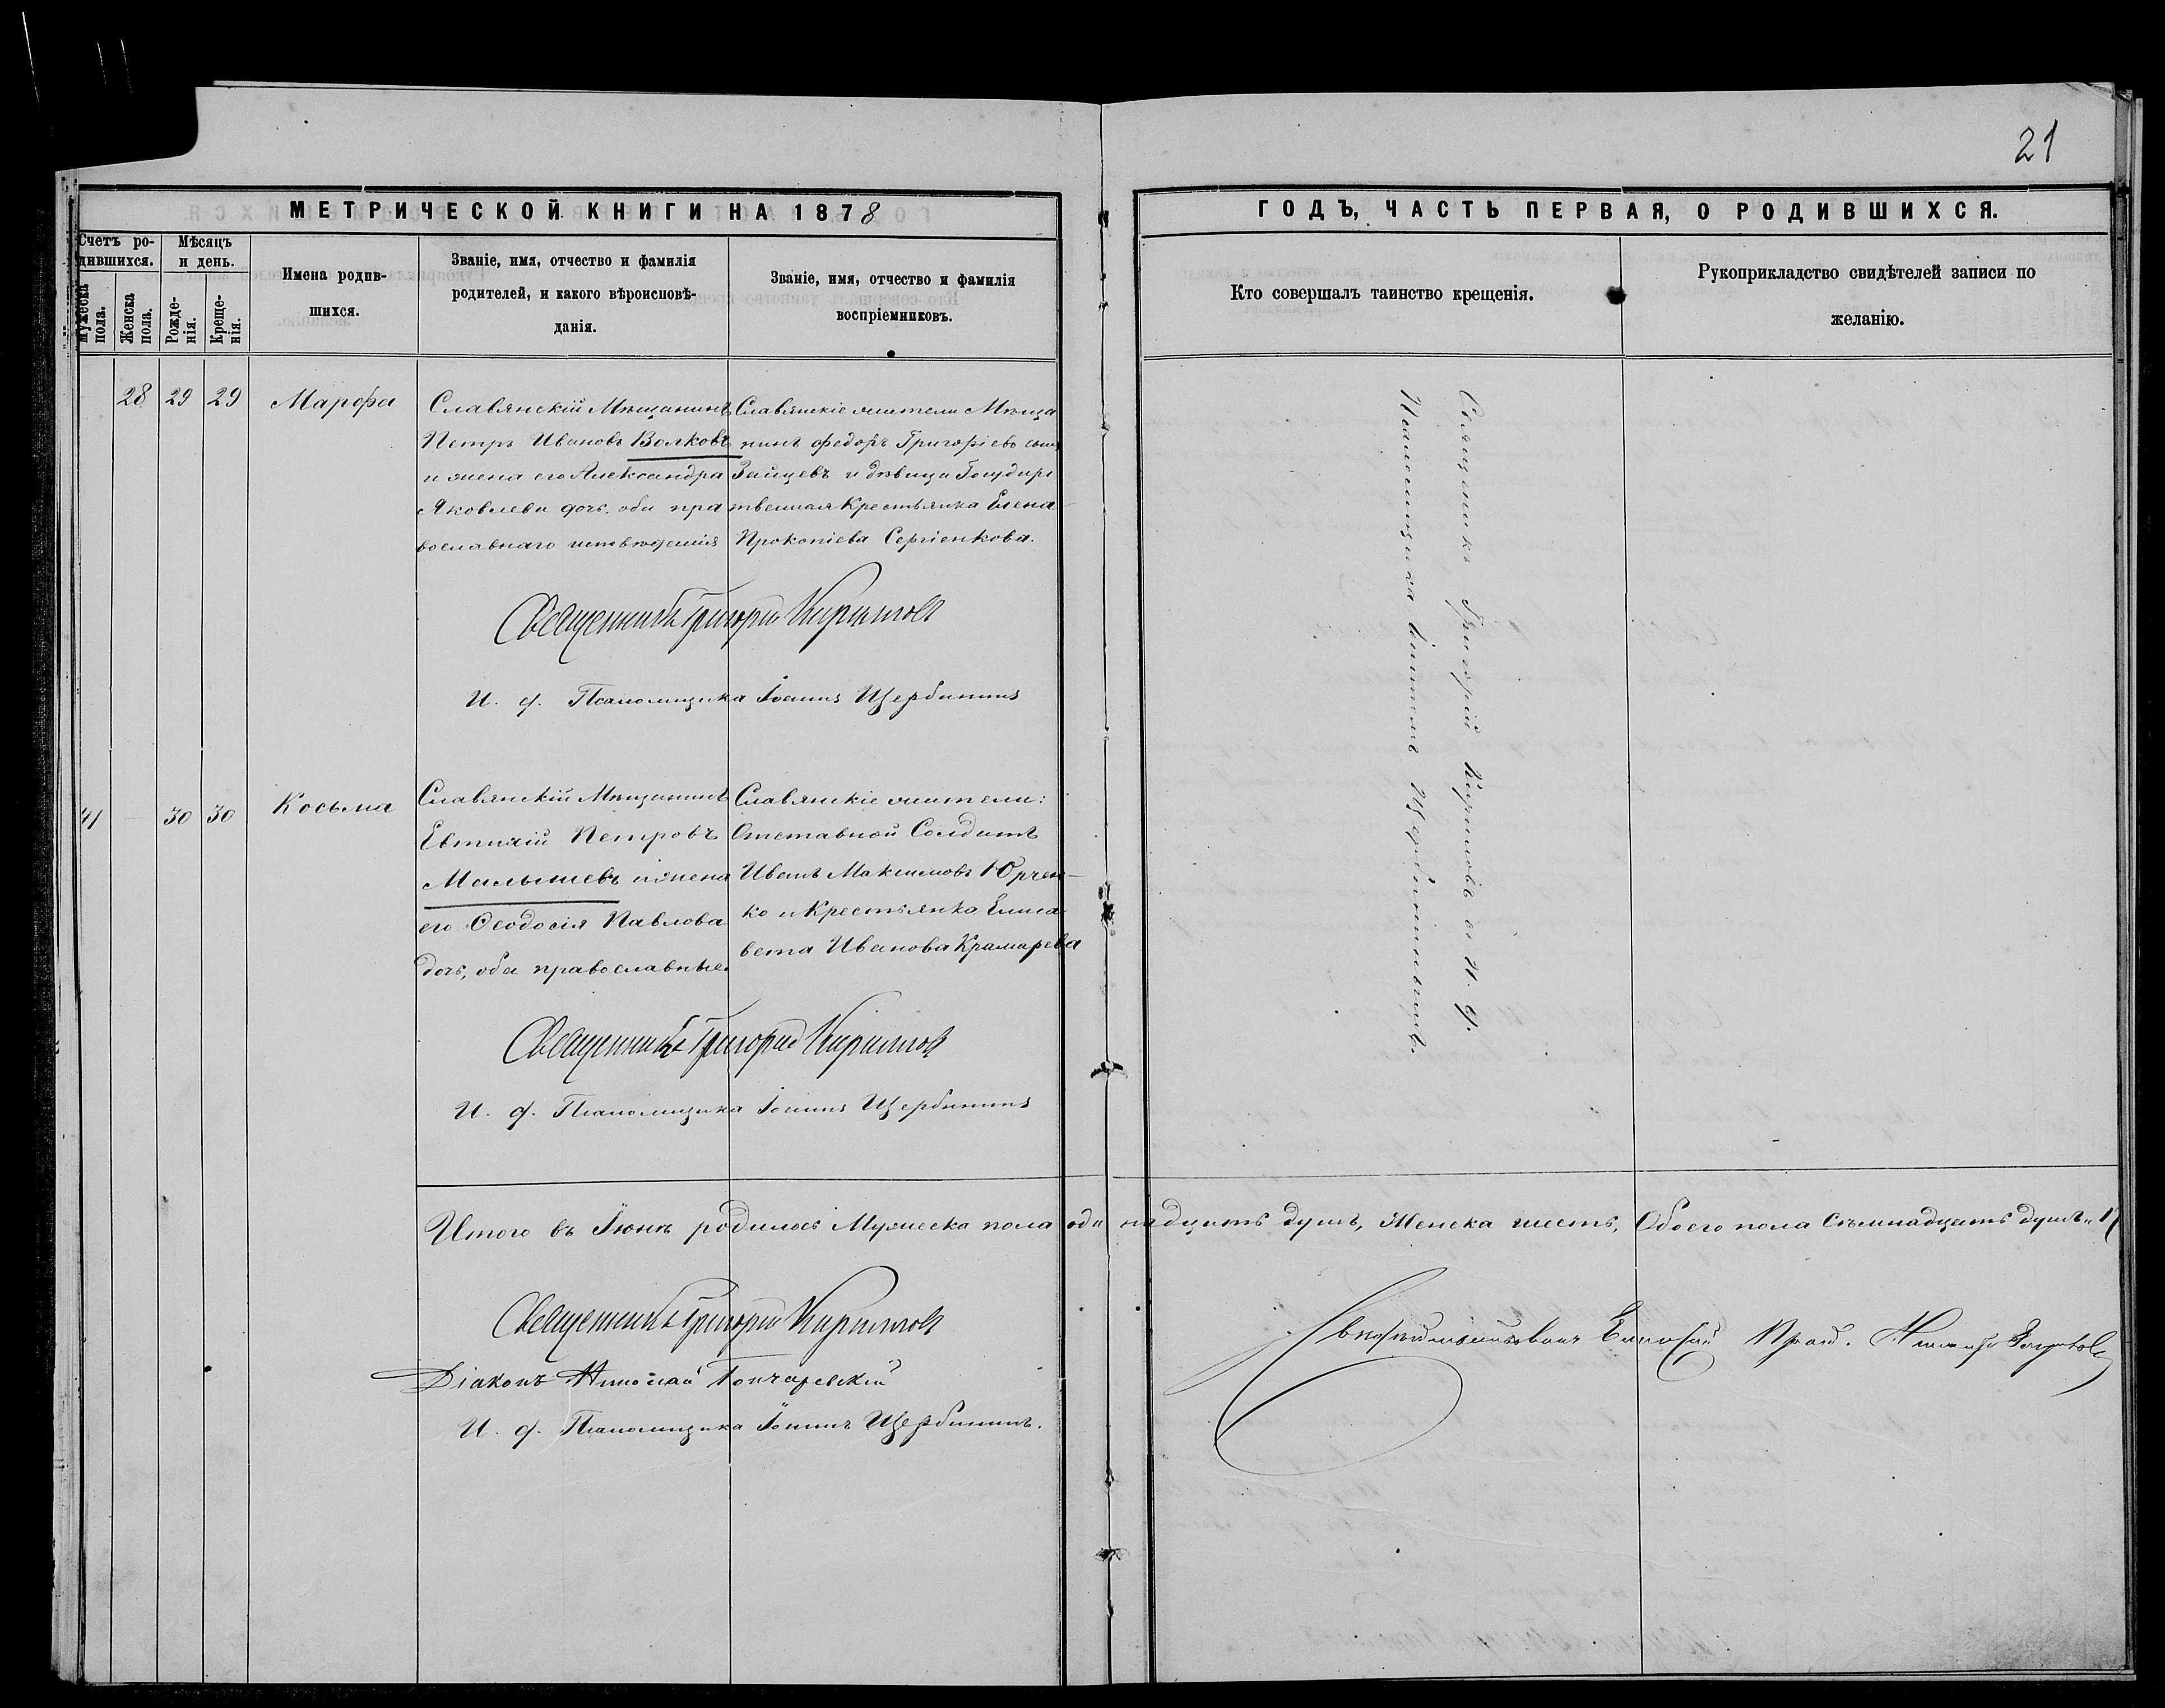 21
МЕТРИЧЕСКОЙ КНИГИ НА 1878
ГОДЪ, ЧАСТЬ ПЕРВАЯ, О РОДИВШИХСЯ.
Счетъ ро-
дившихся.
Мужеска
пола.
Женска
пола.
Мѣсяцъ
и день.
Рожде-
нія.
Креще-
нія.
Имена родив-
шихся.
Званіе, имя, отчество и фамилія
родителей, и какого вѣроисповѣ-
данія.
Званіе, имя, отчество и фамилія
воспріемниковъ.
Кто совершалъ таинство крещенія.
Рукоприкладство свидѣтелей записи по
желанію.
28 29 29
Марѳа
Славянскій Мѣщанинъ
Петръ Ивановъ Волковъ
и жена его Александра
Яковлева дочь, оба пра
вославнаго исповѣденія
Славянскіе жители Мѣща
нинъ Федоръ Григорьевъ сынъ
Зайцевъ и дѣвица Государс
твенная Крестьянка Елена
Прокопіева Сергіенкова.
Священникъ Григорій Кириловъ съ И. д.
Псаломщика Іоанномъ Щербининымъ.
Священникъ Григорій Кириловъ
И. д. Псаломщика Іоаннъ Щербининъ
41 30 30
Косьма
Славянскій Мѣщанинъ
Евтихій Петровъ
Малышевъ и жена
его Ѳеодосія Павлова
дочь, оба православные.
Славянскіе жители:
Отставной Солдатъ
Иванъ Максимовъ Юрчен-
ко и Крестьянка Елиса
вета Иванова Крамарева
Священникъ Григорій Кириловъ
И. д. Псаломщика Іоаннъ Щербининъ
Итого въ Іюнѣ родилось Мужеска пола оди надцать душъ, Женска шесть, Обоего пола Съмнадцать душъ 17
Священникъ Григорій Кириловъ
Діаконъ Николай Гончаревскій
И. д. Псаломщика Іоаннъ Щербининъ.